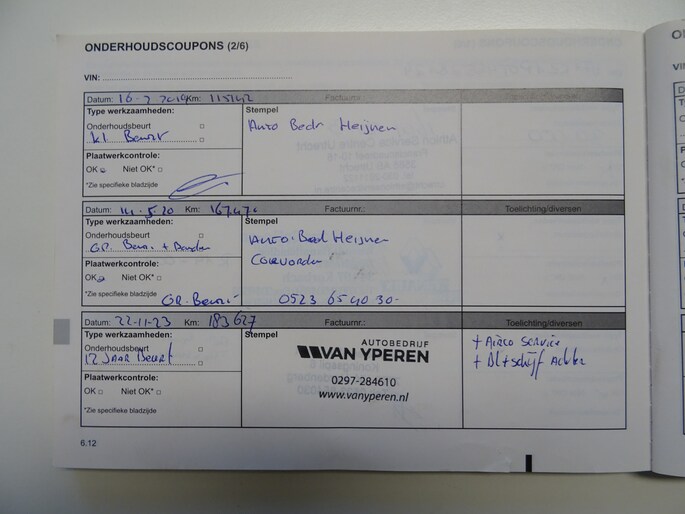 ONDERHOUDSCOUPONS (2/6)
VIN:
Datum: 16-7 2019 Km: 115742 Factuurnr.:
Type werkzaamheden: Stempel
Onderhoudsbeurt Auto Bedr Heijnen
kl Beurt
Plaatwerkcontrole:
OK Niet OK*
*Zie specifieke bladzijde
Datum: 14-5-20 Km: Factuurnr.: Toelichting/diversen
Type werkzaamheden: Stempel
Onderhoudsbeurt Auto-Bed Heijnen
GR. Beurt + Banden
Coevorden
Plaatwerkcontrole:
OK Niet OK*
*Zie specifieke bladzijde GR-Beurt 0523 65 40 30-
Datum: 22-11-23 Km: 183627 Factuurnr.: Toelichting/diversen
Type werkzaamheden: Stempel
Onderhoudsbeurt
12 JAAR Beurt
AUTOBEDRIJF
VAN YPEREN
0297-284610
www.vanyperen.nl
+ AIRCO SERVICE
+ Bl+schijf Achter
Plaatwerkcontrole:
OK Niet OK*
*Zie specifieke bladzijde
6.12